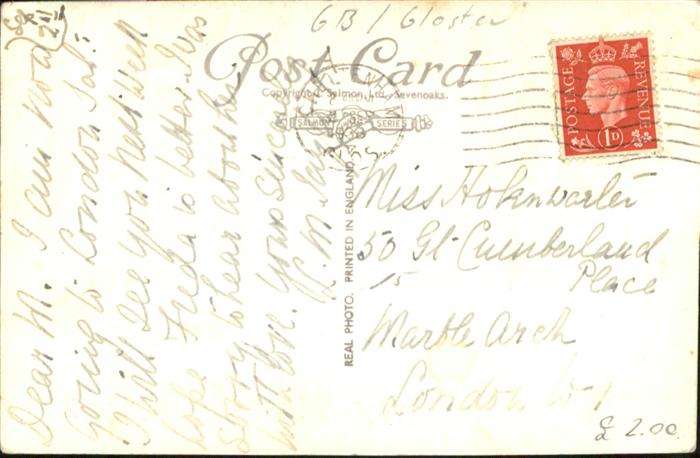 GB / Gloster
Post Card
Copyright. Salmon Ltd., Sevenoaks.
SALMON SERIES
POSTAGE REVENUE
1D
REAL PHOTO. PRINTED IN ENGLAND
Dear M. I am now
going to London Sat.
I will see you next week
hope Freda is better. I was
sorry to hear about her
with love. Yours Sincer
Miss Hohnwarter
50 Gt. Cumberland
Place
15
Marble Arch
London W-1
£ 2.00